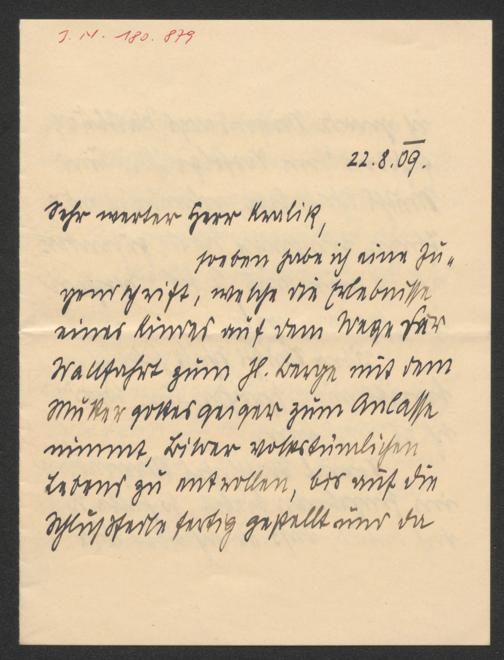 J. N. 180.879
22.8.09.
Sehr werter Herr Kralik,
soeben habe ich eine Ju-
gendschrift, welche die Erlebnisse
eines Kindes auf dem Wege der
Wallfahrt zum hl. Berge mit dem
Muttergottesgeiger zum Anlasse
nimmt, Bilder volkstümlichen
Lebens zu entrollen, bis auf die
Schlußteile fertig gestellt und da